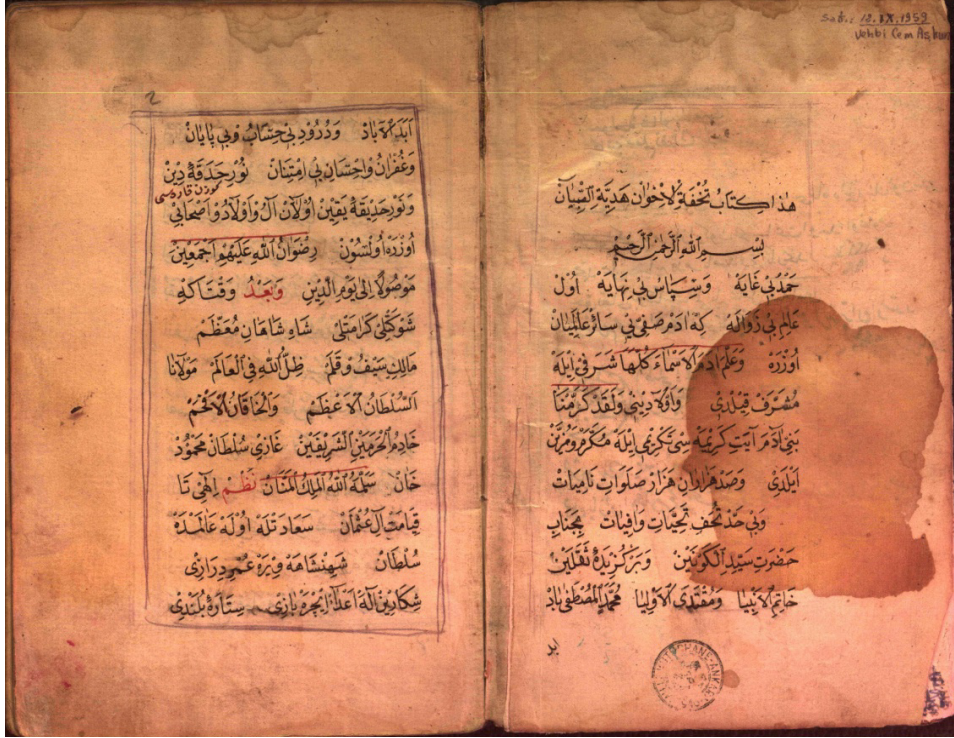 Sat.: 18.IX.1959
Vehbi Cem Aşkun
هذا كتاب تحفة الاخوان هدية الصبيان
بسم الله الرحمن الرحيم
حمد بى غايه وسپاس بى نهايه اول
عالم بى زواله كه آدم صفى بى سائر عالميان
اوزره وعلم ادم الاسماء كلها شرفى ايله
مشرف قيلدى واولاد ينى ولقد كرمنا
بنى ادم آيت كريمه سى تكريمى ايله مكرم ومزين
ايلدى وصد هزاران هزار صلوات ناميات
وبى حد تحف تحيات وافيات بجناب
حضرت سيد الكونين وبركزيده ثقلين
خاتم الانبيا ومقتدى الاوليا محمد المصطفى باد
ابد
2
ابد الآباد ودرود بى حساب وبى پايان
وغفران واحسان بى امتنان نور حدقه دين
ونور حديقه يقين اولان آل واولاد واصحابى
اوزره اولسون رضوان الله عليهم اجمعين
موصولا الى يوم الدين وبعد وقتاكه
شوكتلى كرامتلى شاه شاهان معظم
مالك سيف وقلم ظل الله فى العالم مولانا
السلطان الاعظم والخاقان الافخم
خادم الحرمين الشريفين غازى سلطان محمود
خان سلمه الله الملك المنان نظم الهى تا
قيامت آل عثمان سعادتله اوله عالمده
سلطان شهنشاهه ويره عمر درازى
شكار ين آله اعدا ايچره بازى ستاره بلندى